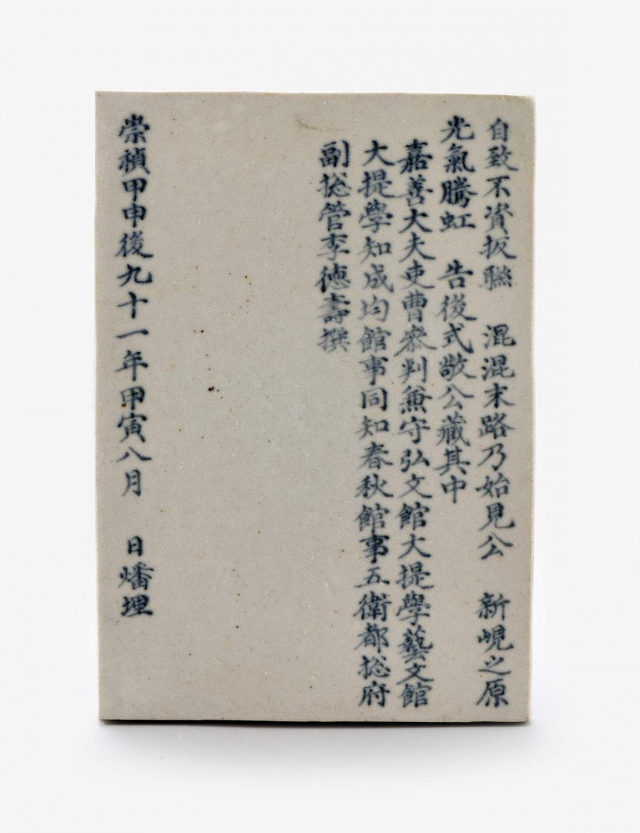 自致不資扳聮 混混末路乃始見公 新峴之原
光氣騰虹 告後式敬公藏其中
嘉善大夫吏曹叅判兼守弘文館大提學藝文館
大提學知成均館事同知春秋館事五衛都揔府
副揔管李德壽撰
崇禎甲申後九十一年甲寅八月 日燔埋